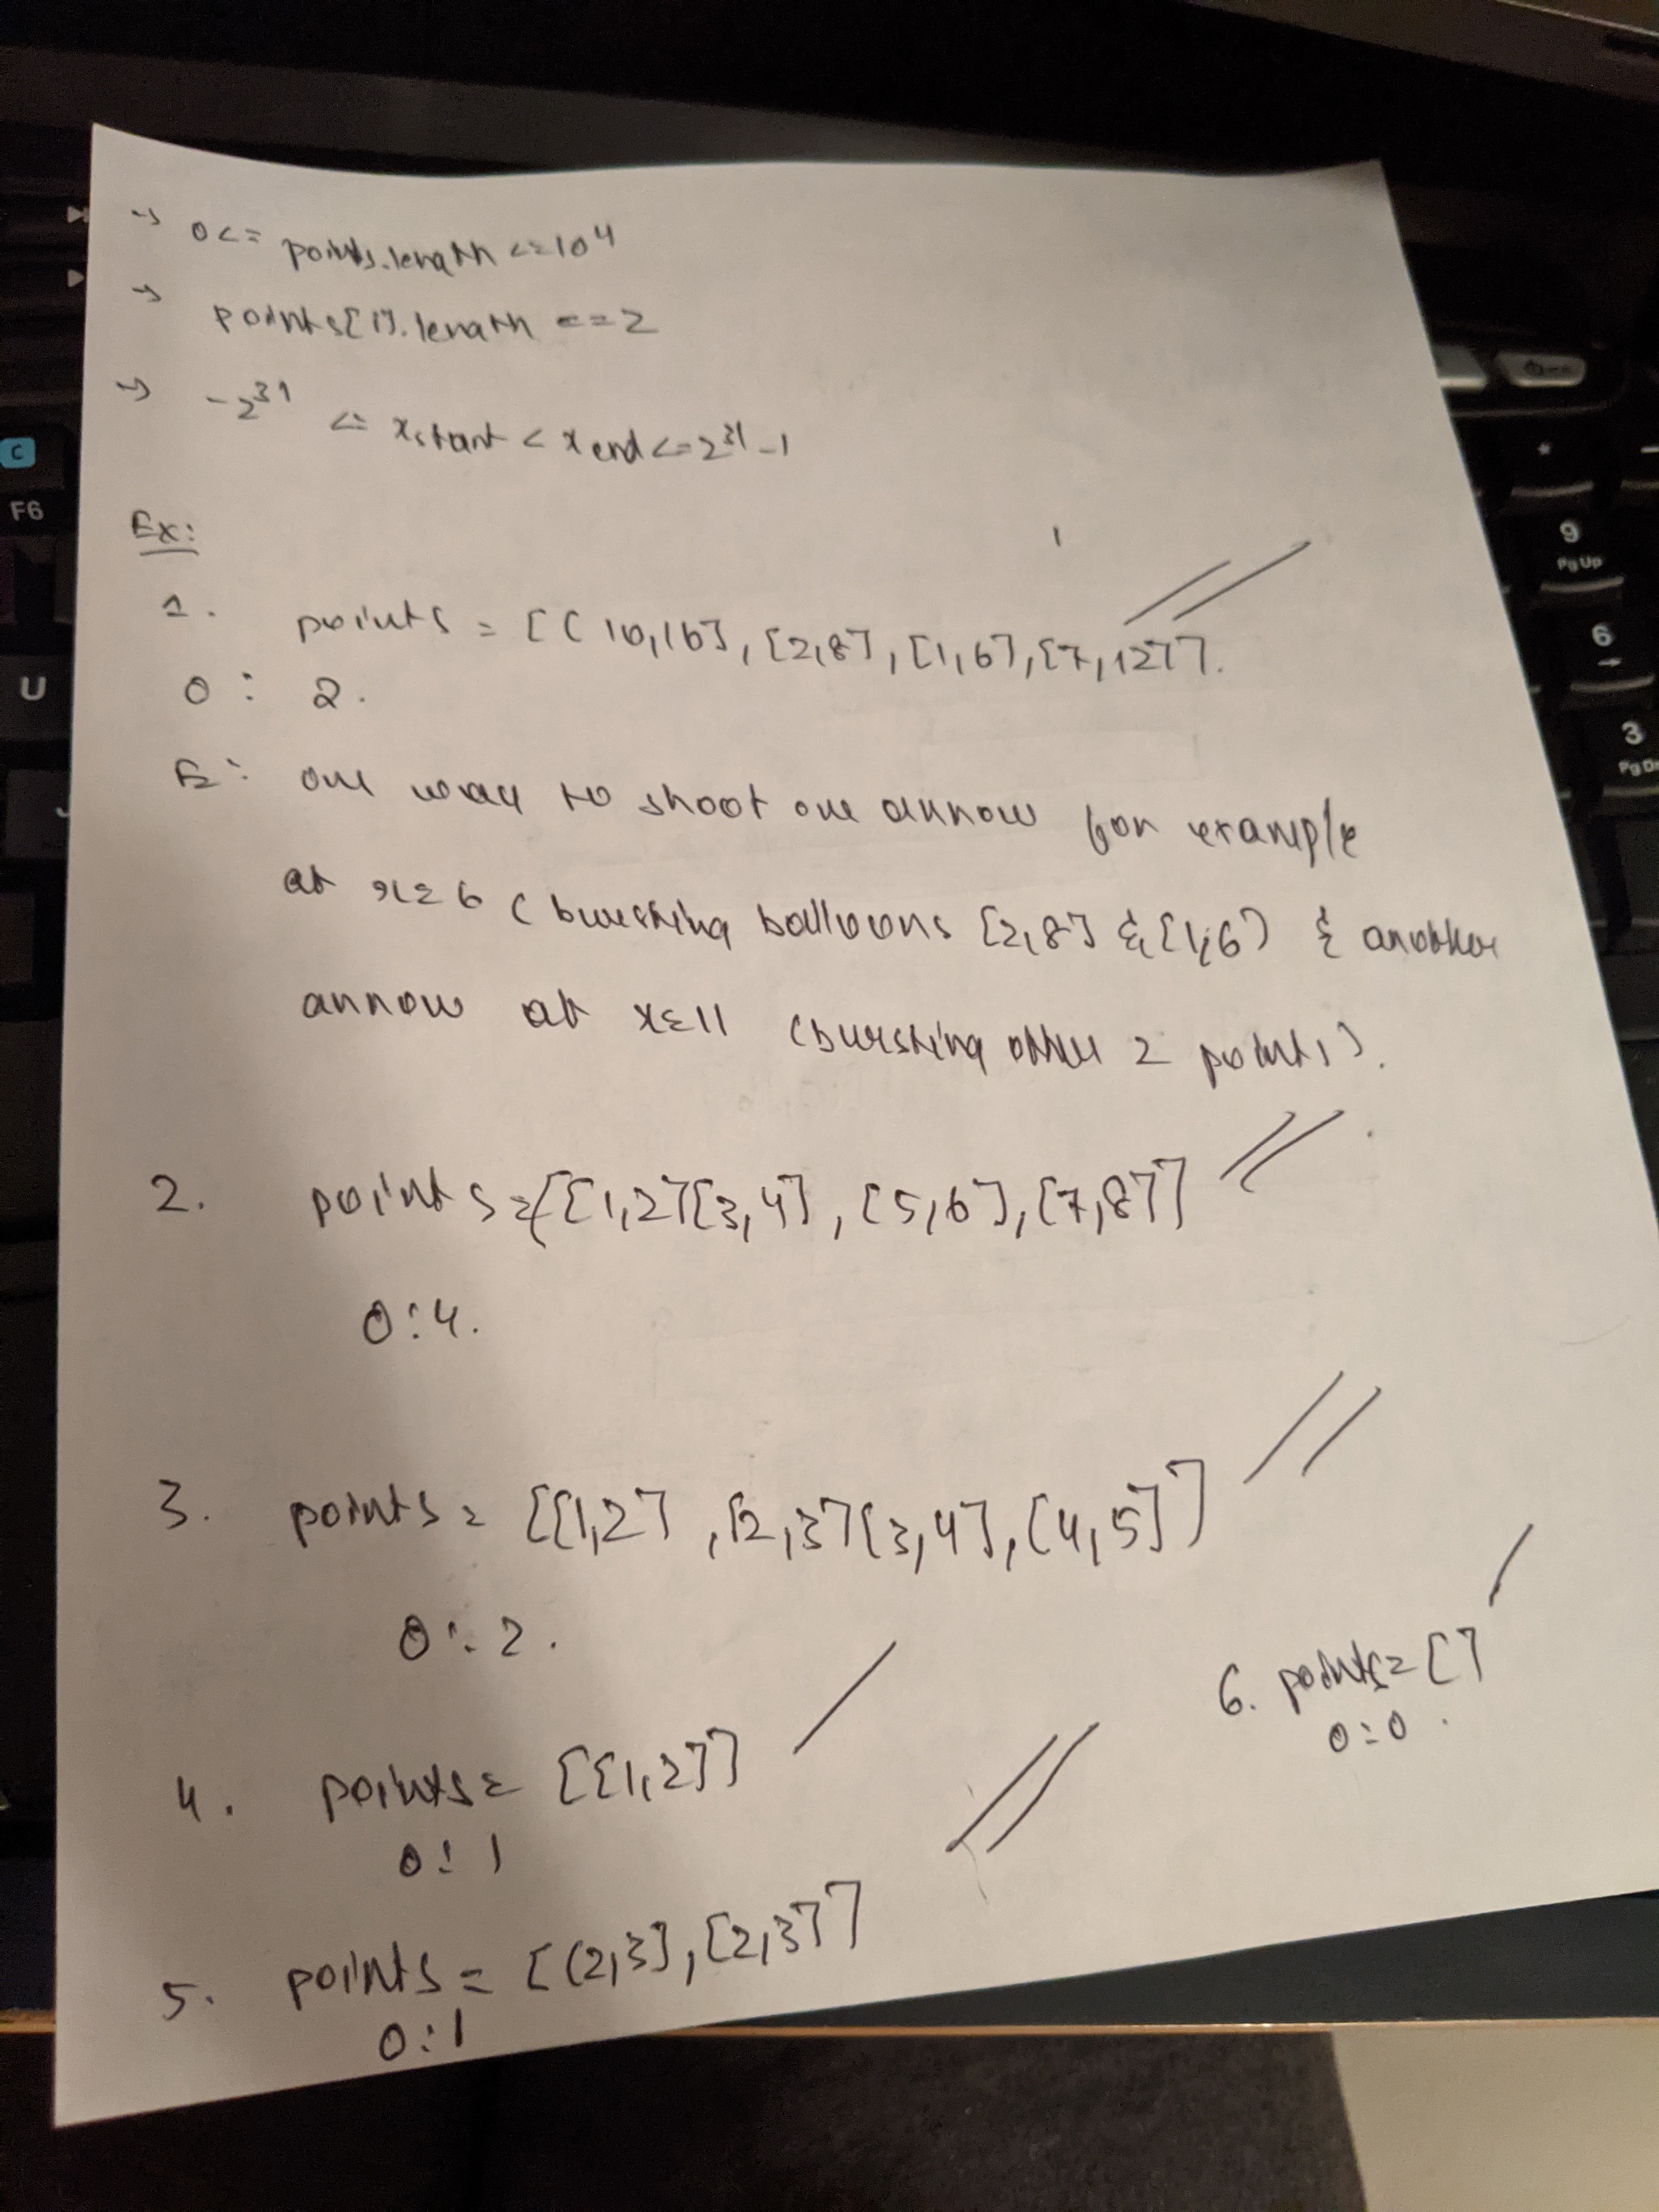 → 0<= points.length <=10^4
→ points[i].length ==2
→ -2^31 <= xstart < xend <=2^31-1
Ex:
1. points = [[10,16], [2,8], [1,6], [7,12]].
O : 2.
E: one way to shoot one arrow for example
at x=6 (bursting balloons [2,8] & [1,6]) & another
arrow at x=11 (bursting other 2 points).
2. points=[[1,2][3,4], [5,6], [7,8]]
O:4.
3. points= [[1,2], [2,3][3,4], [4,5]]
O:2.
6. points=[]
O:0.
4. points= [[1,2]]
O:1
5. points= [[2,3], [2,3]]
O:1
C
F6
U
*
9
PgUp
6
→
3